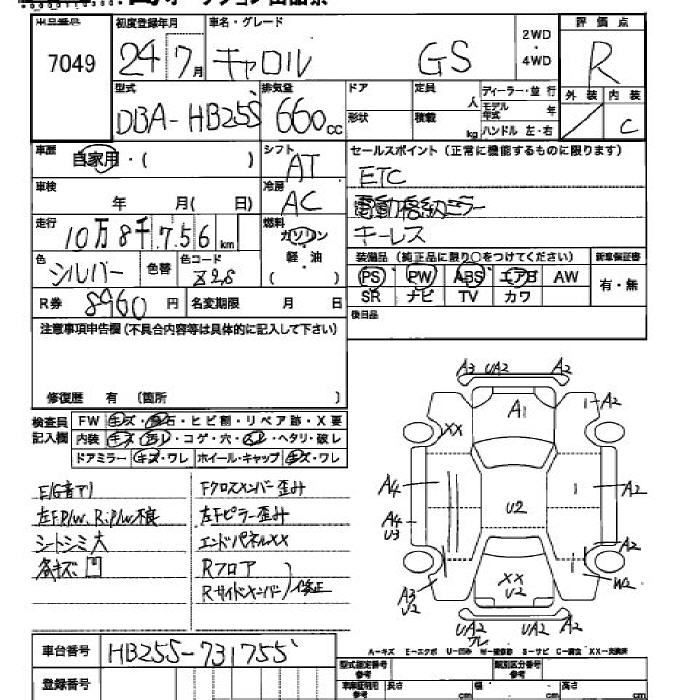 7049
初度登録年月
24年7月
車名・グレード
キャロル GS
2WD
・
4WD
評価点
R
外装 内装
C
型式
DBA-HB25S
排気量
660cc
ドア
形状
定員 人
積載 kg
ディーラー・並行
モデル年式 年
ハンドル 左・右
車歴
自家用・( )
シフト
AT
セールスポイント(正常に機能するものに限ります)
ETC
電動格納ミラー
キーレス
車検
年 月( 日)
冷房
AC
走行
10万8千756km
燃料
ガソリン
軽・油
色
シルバー
色替
色コード
Z2S
装備品(純正品に限り○をつけてください)
新車保証書
PS PW ABS エアB AW
SR ナビ TV カワ
有・無
R券 8960円
名変期限 月 日
後日品
注意事項申告欄(不具合内容等は具体的に記入して下さい)
修復歴 有 〔箇所 〕
検査員
記入欄
FW キズ・飛石・ヒビ割・リペア跡・X要
内装 キズ・汚レ・コゲ・穴・スレ・ヘタリ・破レ
ドアミラー キズ・ワレ ホイール・キャップ キズ・ワレ
E/G音アリ
左F P/W、R:P/W不良
シートシミ大
各キズ凹
Fクロスメンバー歪み
左Fピラー歪み
エンドパネルXX
Rフロア
Rサイドメンバー 修正
A3 UA2 A2
A1
1-A2
XX
A4
A4
U3
U2
1
A2
A2
W2
XX
U2
A3
U2
UA2 UA2 A2
ワレ
A-キズ E-エクボ U-凹み W-補修跡 S-サビ C-腐食 XX-交換済
車台番号
HB25S-731755
登録番号
型式指定番号
参考
類別区分番号
参考
車庫証明用
参考
長さ cm
幅 cm
高さ cm